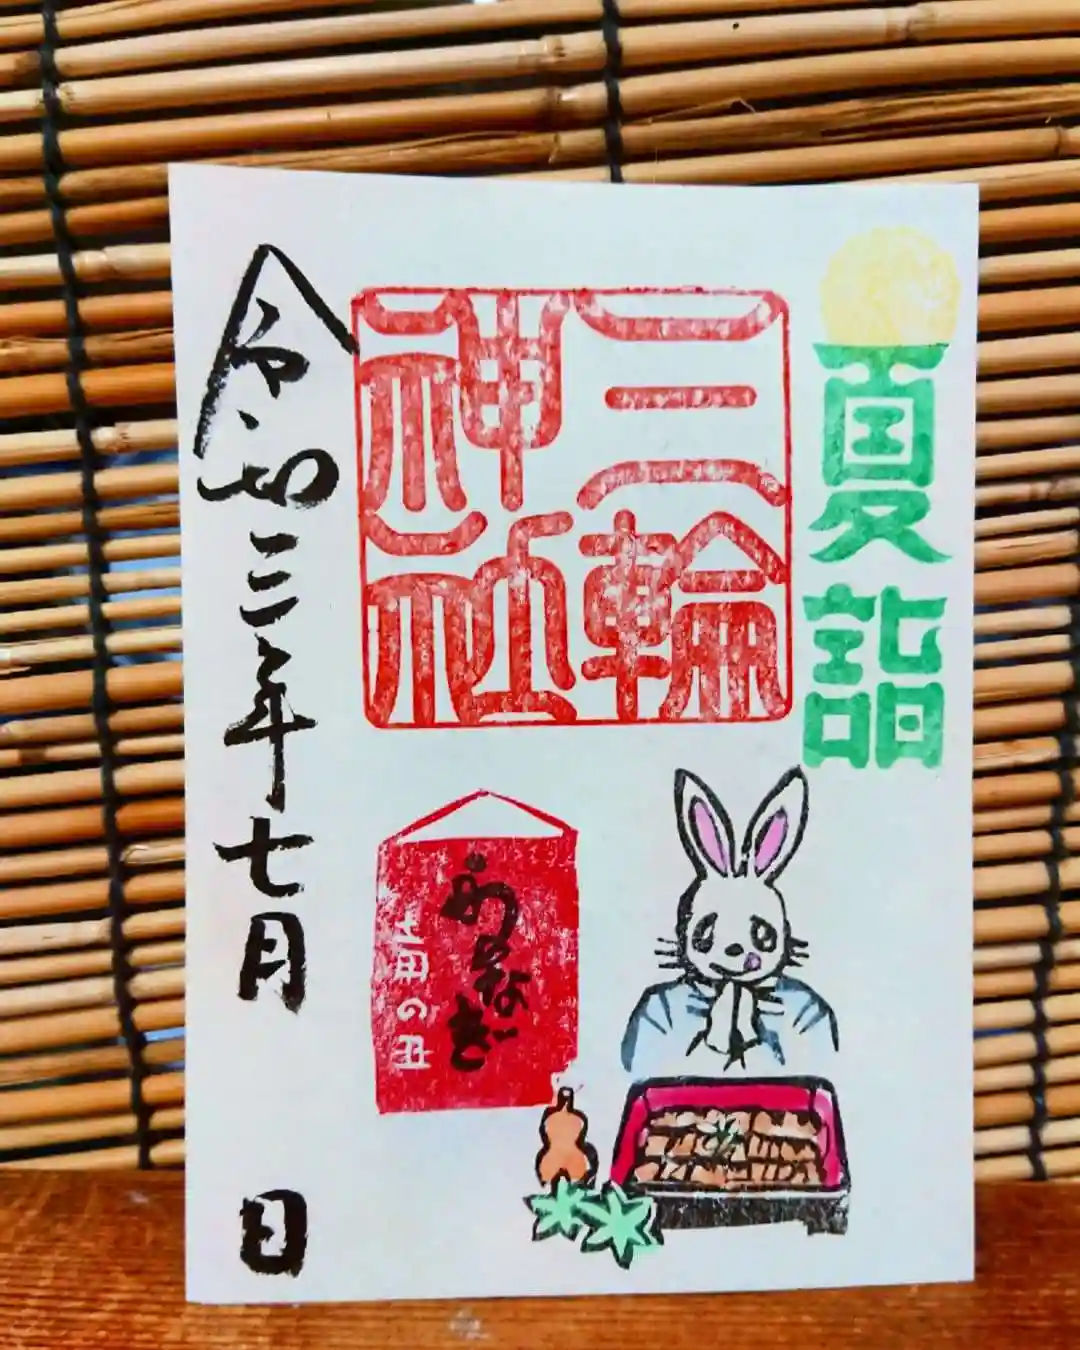 夏詣
三輪
神社
うなぎ
土用の丑
令和三年七月 日